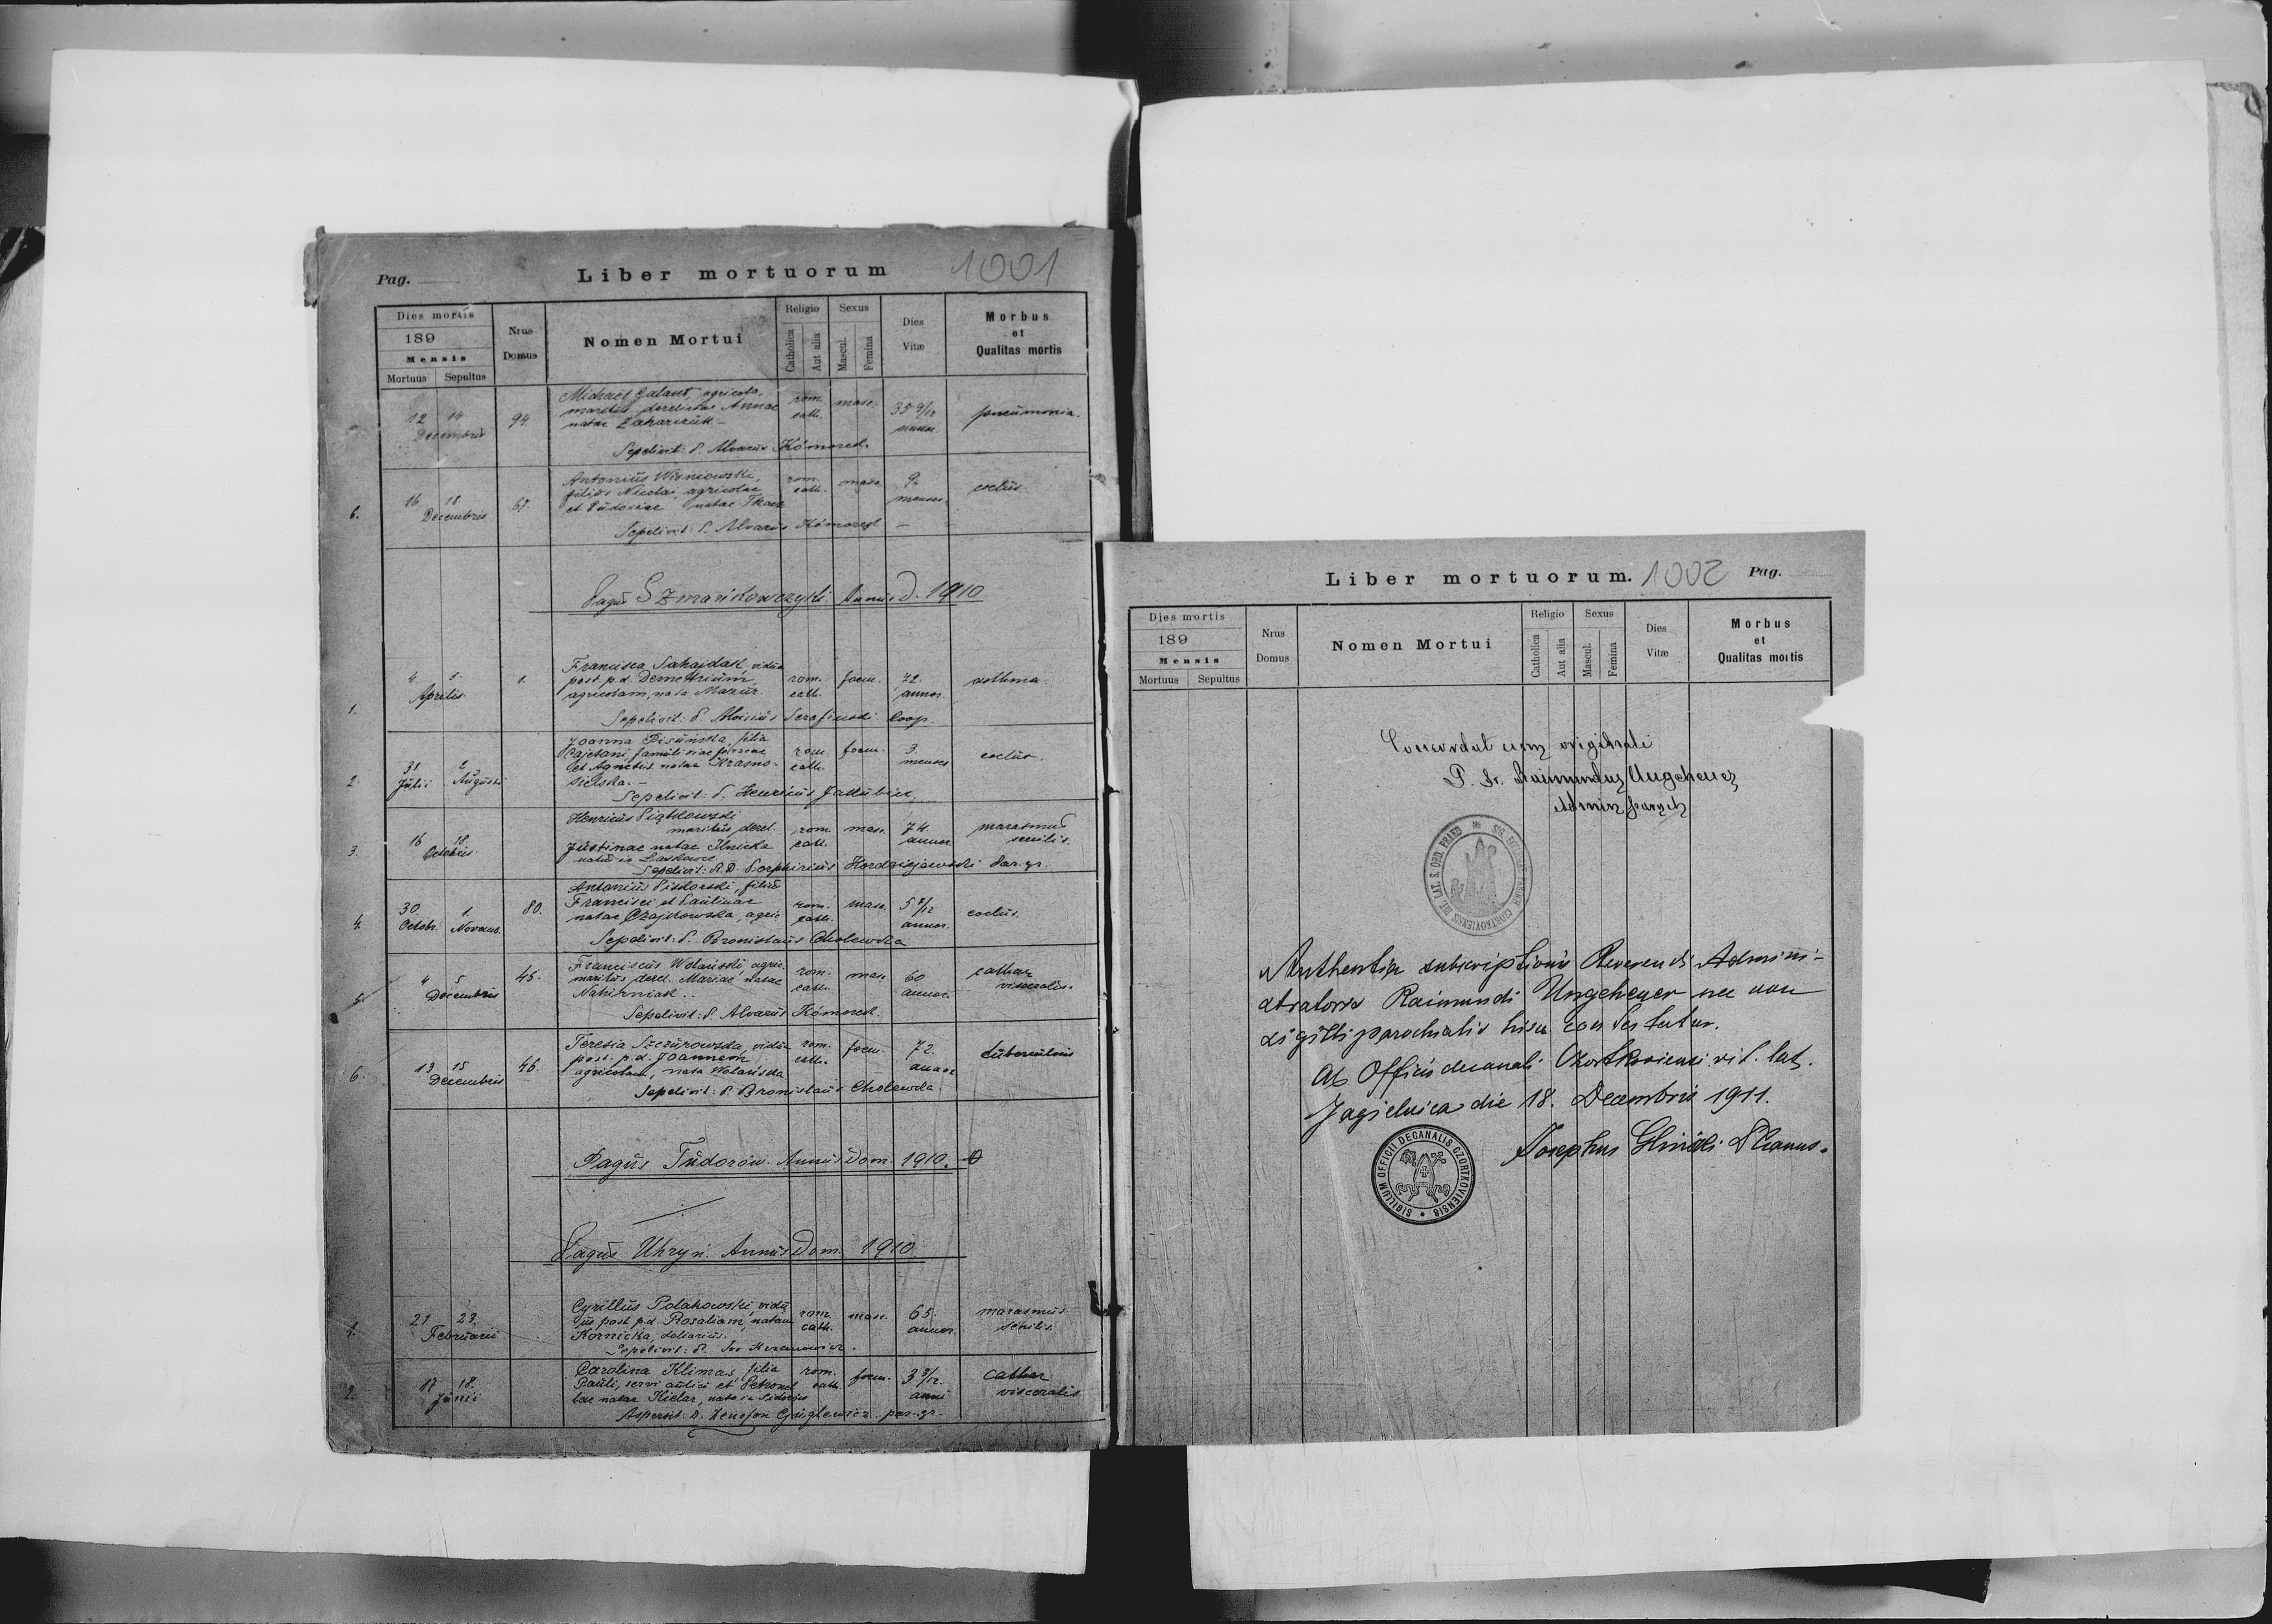 Pag.
Liber mortuorum
1001
Dies mortis
189
Mensis
Mortuus Sepultus
Nrus Domus
Nomen Mortui
Religio
Catholica
Aut alia
Sexus
Mascul.
Femina
Dies Vitæ
Morbus
et
Qualitas mortis
12 14 Decembris
94.
Michael Galant, agricola,
maritus derelictae Annae
natae Zaharczuk –
rom. cath.
masc.
35 9/12 annor.
pneumonia.
Sepelivit: P. Alvarus Kómorek.
6.
16 18 Decembris
Antonius Wiśniowski,
filius Nicolai, agricolae
et Eudociae natae Tkacz
rom. cath.
masc.
9. menses.
Sepelivit: P. Alvarus Kómorek –
Pagus Szmańkowczyki. Annus D. 1910
1.
4. 5. Aprilis
1.
Francisca Sahajdak, vidua
post. p.d. Demetrium,
agricolam, nata Mazur.
rom. cath.
foem.
72. annor.
asthma.
Sepelivit: P. Aloisius Serafinski Coop.
2.
31. Julii 2. Augusti
Joanna Pisuńska, filia
Cajetani,
et Agnetis natae Krasno-
sielska. –
rom. cath.
foem.
3. menses
Sepelivit: P. Henricus Jakubiec
3.
16 18. Octobris.
Henricus Piątkowski
maritus derel.
Justinae natae Ilnicka
natus in Laskowce
rom. cath.
masc.
74 annor.
marasmus
senilis.
Sepelivit: R. D. Porphirius Hordziejewski Par. gr.
4.
30. Octobr. 1. Novemb.
80.
Antonius Sikorski, filius
Francisci et Paulinae
natae Czajkowska, agric.
rom. cath.
masc.
annor.
Sepelivit: P. Bronislaus Cholewka
5.
4 5 Decembris
45.
Franciscus Wolański, agric.
maritus derel. Mariae natae
Nahirniak..
rom. cath.
masc.
60 annor.
cathar
visceralis.
Sepelivit: P. Alvarus Kómorek.
6.
13 15 Decembris
46.
Teresia Szczurowska, vidua
post. p.d. Joannem
agricolam, nata Wolańska
rom. cath.
foem.
72. annor.
tuberculosis
Sepelivit: P. Bronislaus Cholewka.
Pagus Tudorów. Annus Dom. 1910.
Pagus Uhryń. Annus Dom. 1910.
1.
21 23. Februarii
Cyrillus Polakowski, vidu-
us post p.d. Rosaliam, natam
Kornicka, doliarius.
rom. cath.
masc.
65. annor.
marasmus
senilis.
2.
17 18. Junii
Carolina Klimas, filia
Pauli, servi aulici et Petronel-
lae natae Kielar, nata in
rom. cath.
foem.
3 3/12 anni
cathar
visceralis
Aspersit: D. Xenofon par. gr.
Liber mortuorum.
1002
Pag.
Dies mortis
189
Mensis
Mortuus Sepultus
Nrus Domus
Nomen Mortui
Religio
Catholica
Aut alia
Sexus
Mascul.
Femina
Dies Vitæ
Morbus
et
Qualitas mortis
Concordat cum originali
P. Fr. Raimundus Ungeheuer
Admin. paroch
CZORTKOVIENSIS RIT. LAT. S. ORD. PRAED
Authentia subscriptionis Reverendi Admini-
stratoris Raimundi Ungeheuer nec non
sigilli parochialis hisce contestatur.
Ab Officio decanali Czortkoviensi rit. lat.
Jagielnica die 18. Decembris 1911.
Josephus Decanus.
SIGILLUM OFFICII DECANALIS CZORTKOVIENSIS